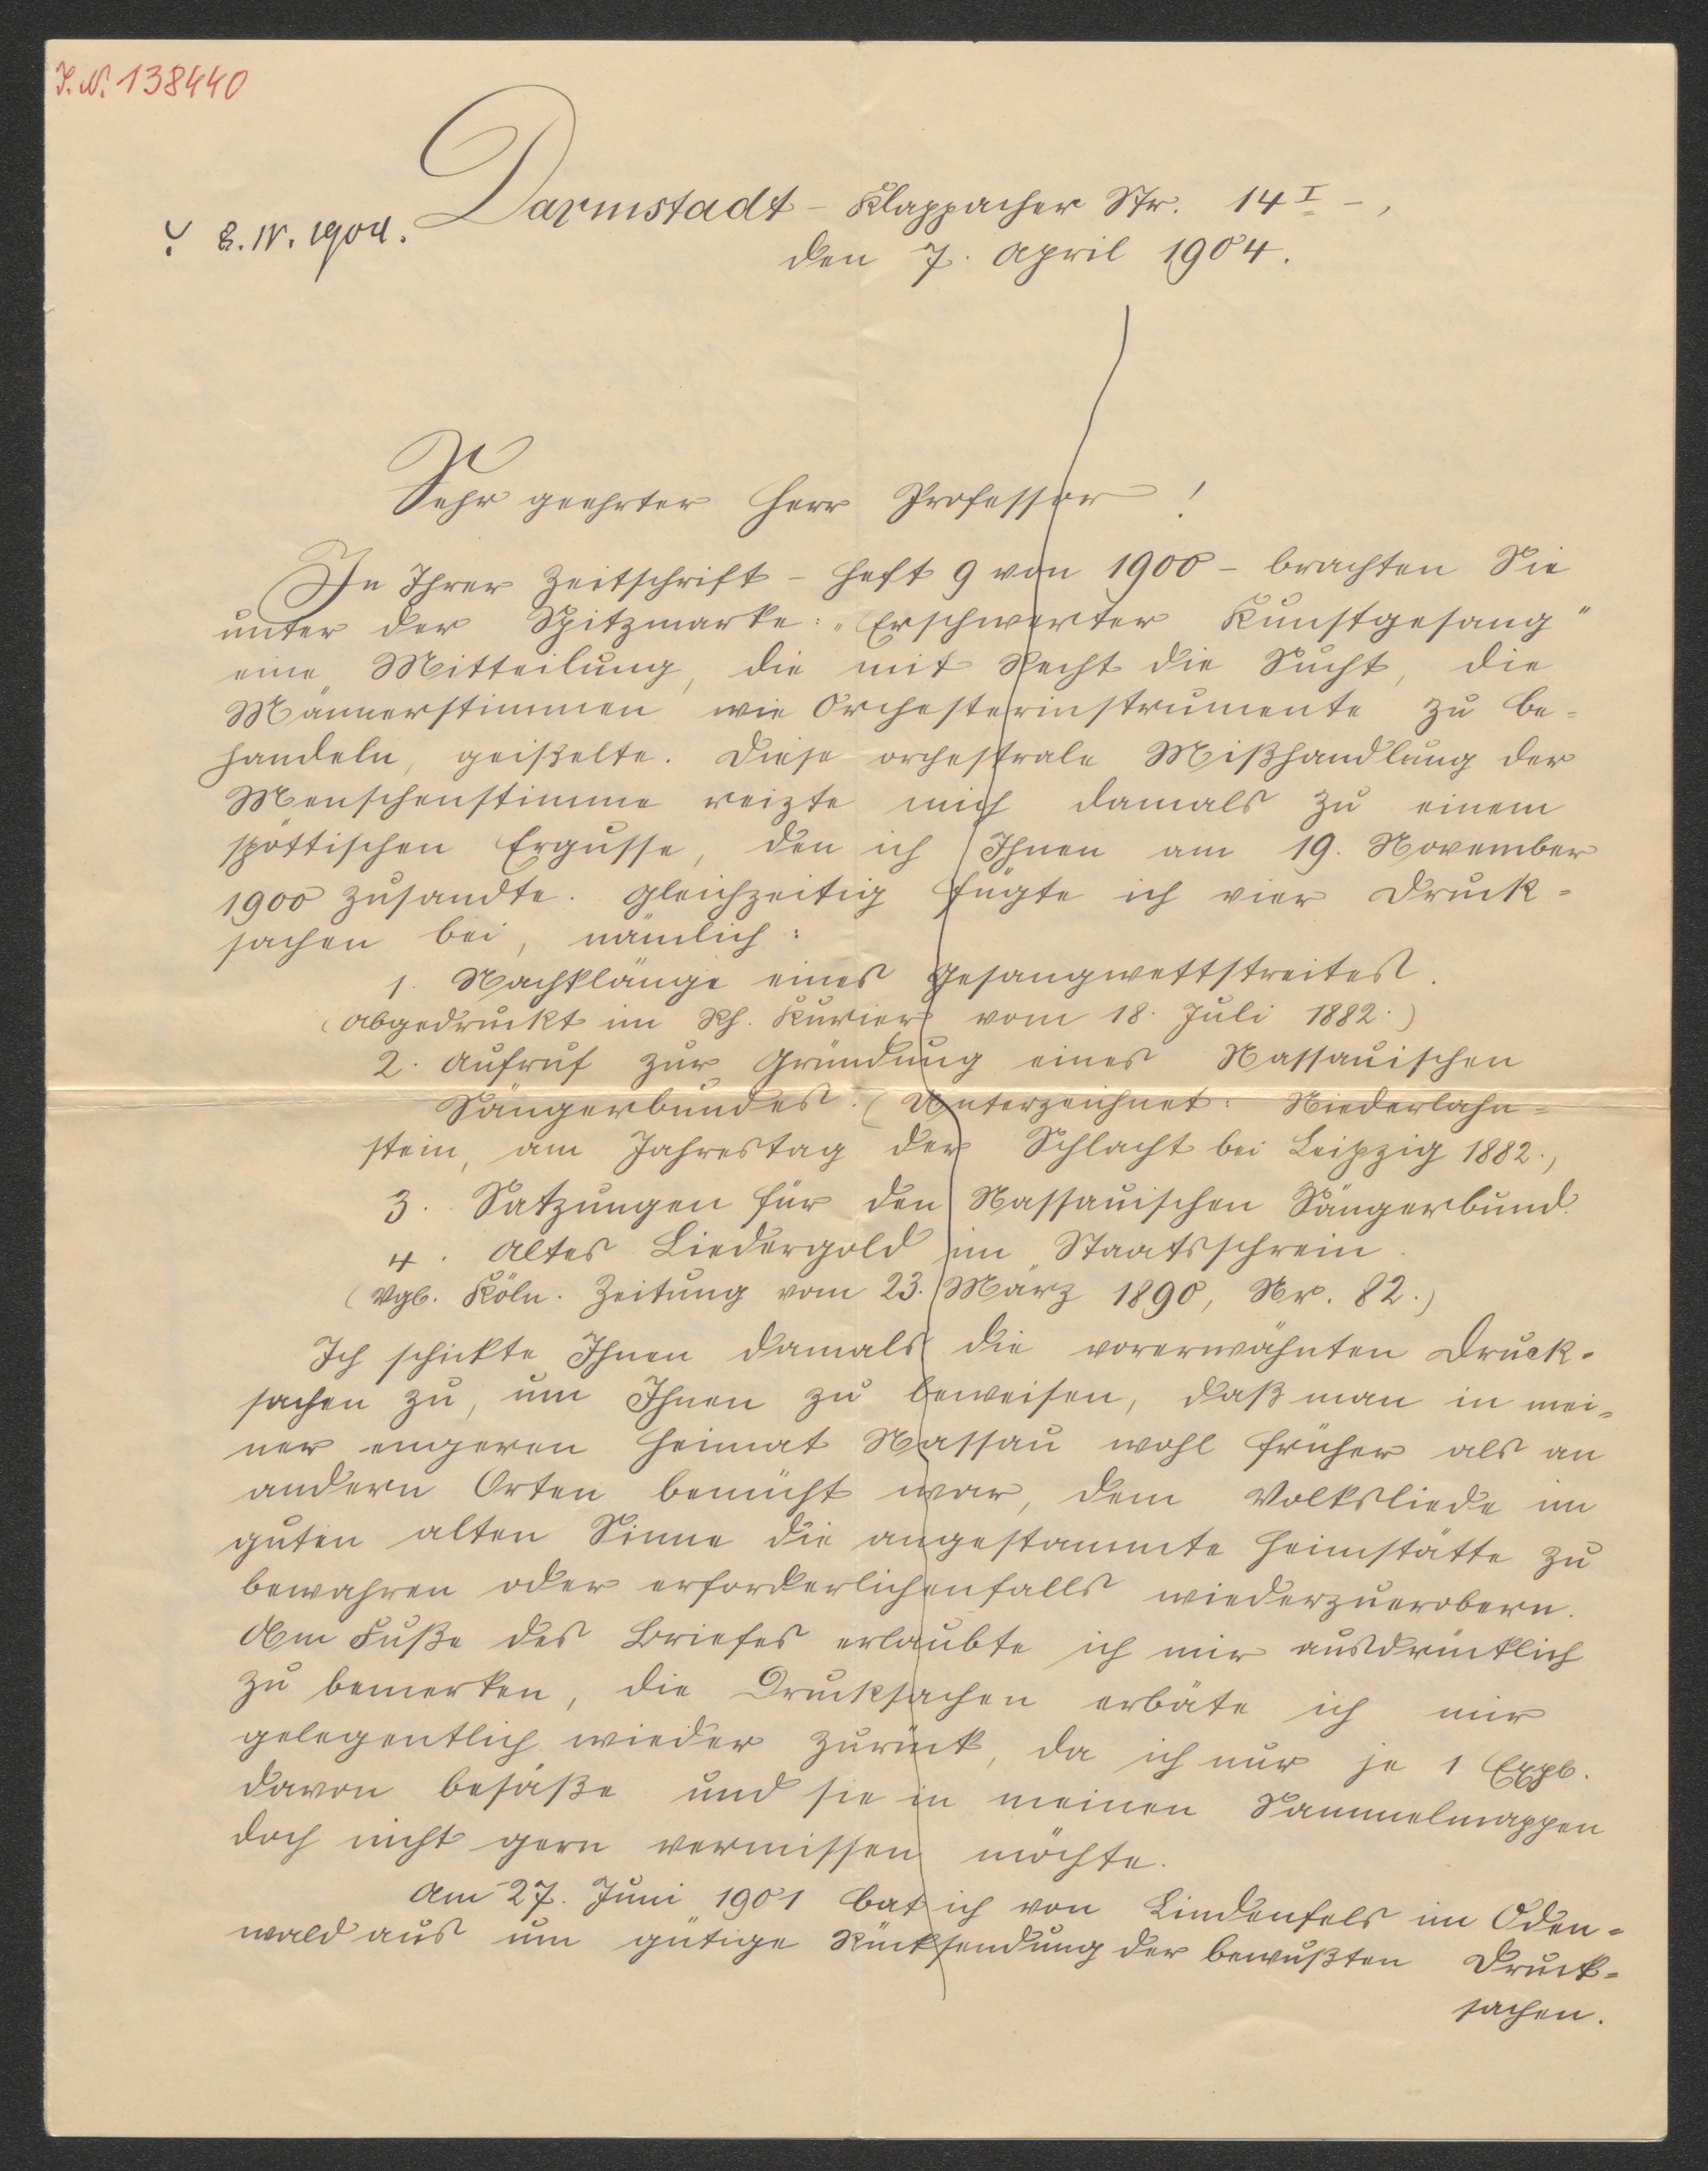 J. N. 138440
Darmstadt – Klappacher Str. 14 I –,
8. IV. 1904.
den 7. April 1904.
Sehr geehrter Herr Professor!
In Ihrer Zeitschrift – Heft 9 von 1900 – brachten Sie
unter der Spitzmarke: „Erschwerter Kunstgesang"
eine Mitteilung, die mit Recht die Sucht, die
Männerstimmen wie Orchesterinstrumente zu be-
handeln, geißelte. Diese orchestrale Mißhandlung der
Menschenstimme reizte mich damals zu einem
spöttischen Ergusse, den ich Ihnen am 19. November
1900 zusandte. Gleichzeitig fügte ich vier Druck-
sachen bei, nämlich:
1. Nachklänge eines Gesangwettstreites.
(Abgedruckt im Rh. Kurier vom 18. Juli 1882.)
2. Aufruf zur Gründung eines Nassauischen
Sängerbundes. (Unterzeichnet: Niederlahn-
stein, am Jahrestag der Schlacht bei Leipzig 1882.)
3. Satzungen für den Nassauischen Sängerbund.
4. Altes Liedergold im Staatsschrein.
(Vgl. Köln. Zeitung vom 23. März 1890, Nr. 82.)
Ich schickte Ihnen damals die vorerwähnten Druck-
sachen zu, um Ihnen zu beweisen, daß man in mei-
ner engeren Heimat Nassau wohl früher als an
andern Orten bemüht war, dem Volksliede im
guten alten Sinne die angestammte Heimstätte zu
bewahren oder erforderlichenfalls wiederzuerobern.
Am Fuße des Briefes erlaubte ich mir ausdrücklich
zu bemerken, die Drucksachen erbäte ich mir
gelegentlich wieder zurück, da ich nur je 1 Expl.
davon besäße und sie in meinen Sammelmappen
doch nicht gern vermissen möchte.
Am 27. Juni 1901 bat ich von Lindenfels im Oden-
wald aus um gütige Rücksendung der bewußten Druck-
sachen.